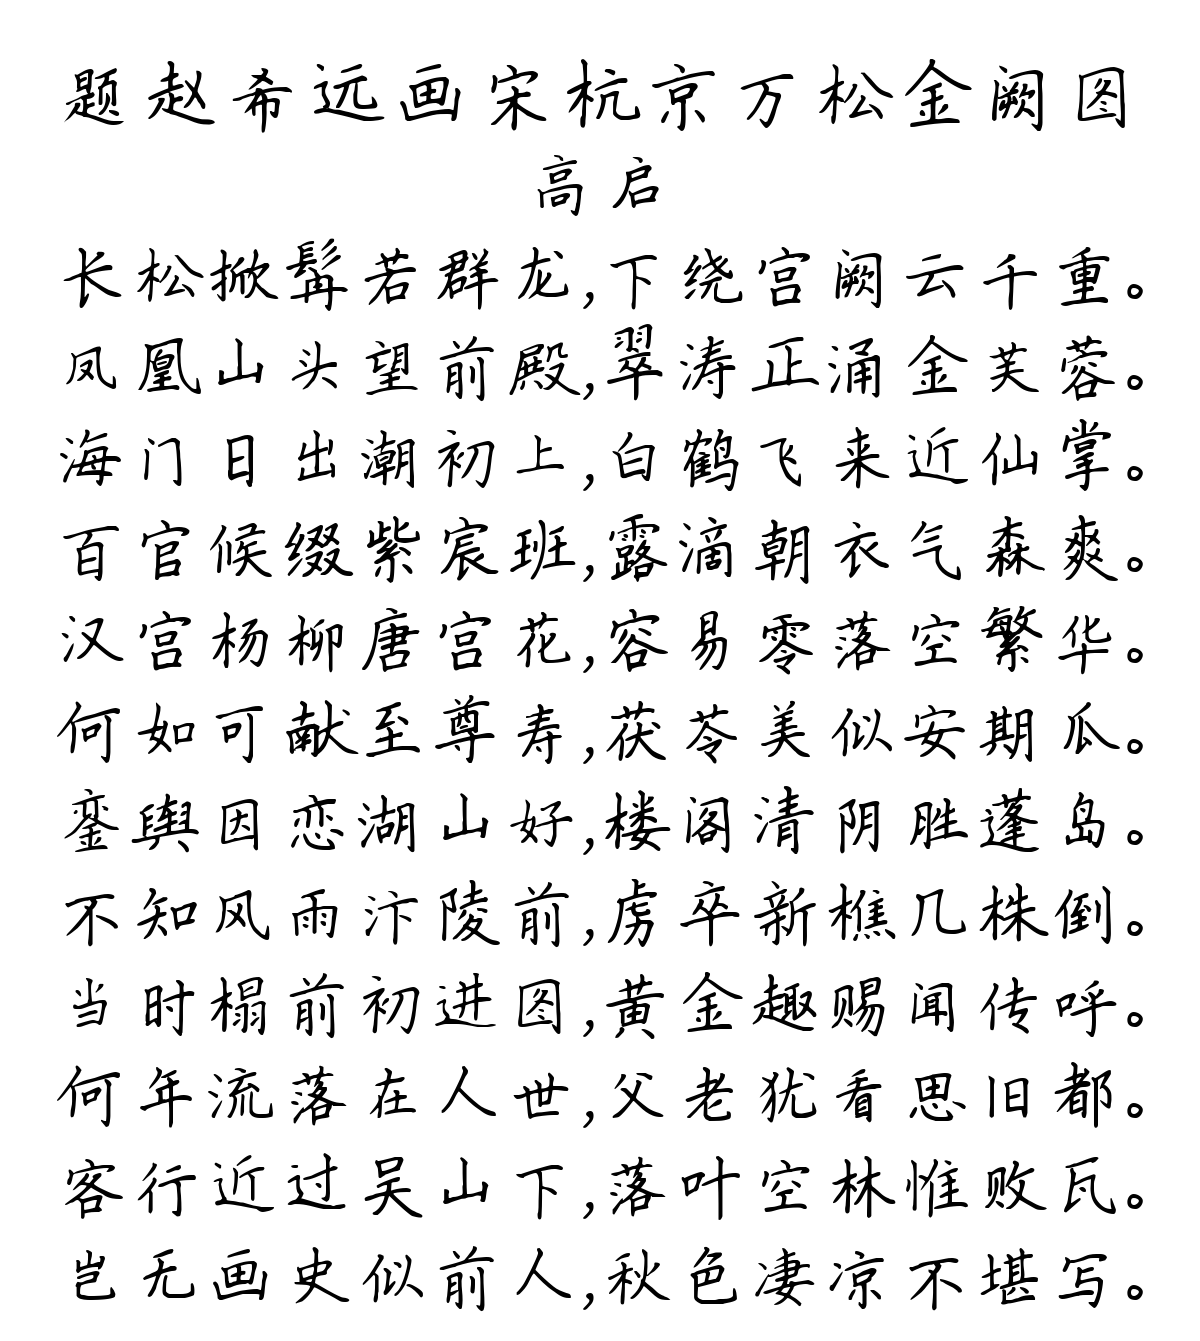 题赵希远画宋杭京万松金阙图
高启
长松掀髯若群龙,下绕宫阙云千重。
凤凰山头望前殿,翠涛正涌金芙蓉。
海门日出潮初上,白鹤飞来近仙掌。
百官候缀紫宸班,露滴朝衣气森爽。
汉宫杨柳唐宫花,容易零落空繁华。
何如可献至尊寿,茯苓美似安期瓜。
銮舆因恋湖山好,楼阁清阴胜蓬岛。
不知风雨汴陵前,虏卒新樵几株倒。
当时榻前初进图,黄金趣赐闻传呼。
何年流落在人世,父老犹看思旧都。
客行近过吴山下,落叶空林惟败瓦。
岂无画史似前人,秋色凄凉不堪写。